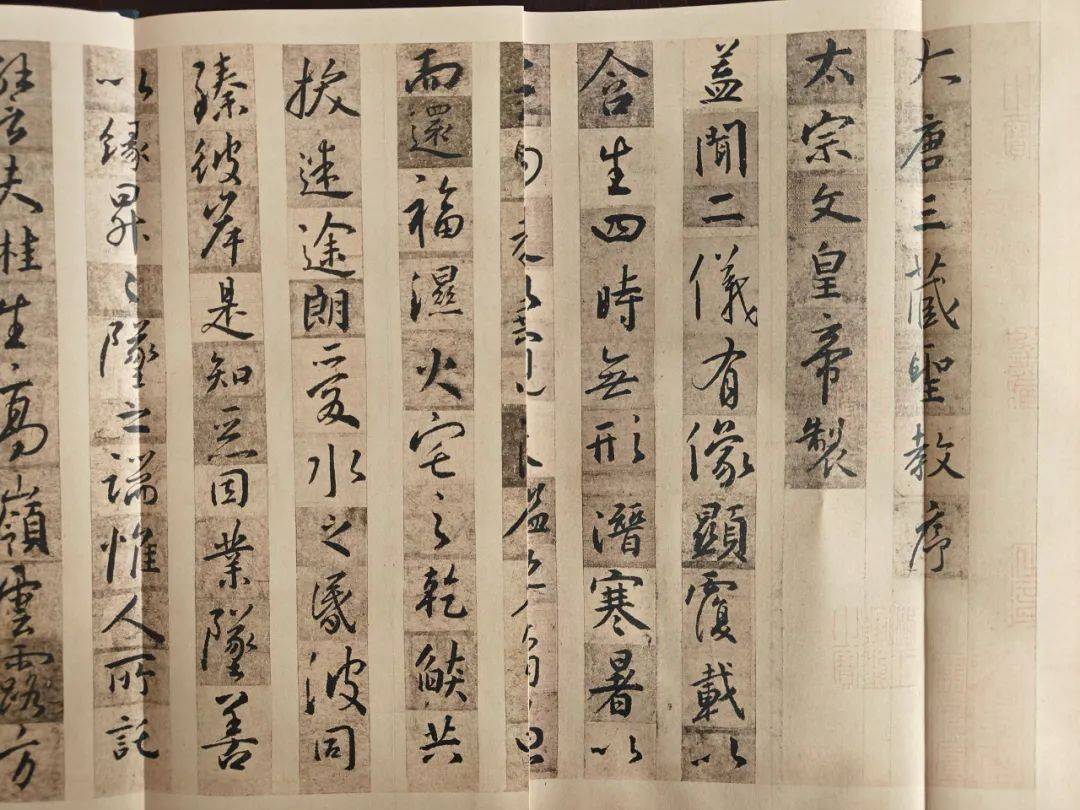 大唐三藏聖教序
太宗文皇帝製
蓋聞二儀有像顯覆載以
含生四時無形潛寒暑以
而還福濕火宅之乾燄共
拔迷途朗愛水之昏波同
臻彼岸是知惡因業墜善
以緣昇〻墜之端惟人所託
夫桂生高嶺雲露方